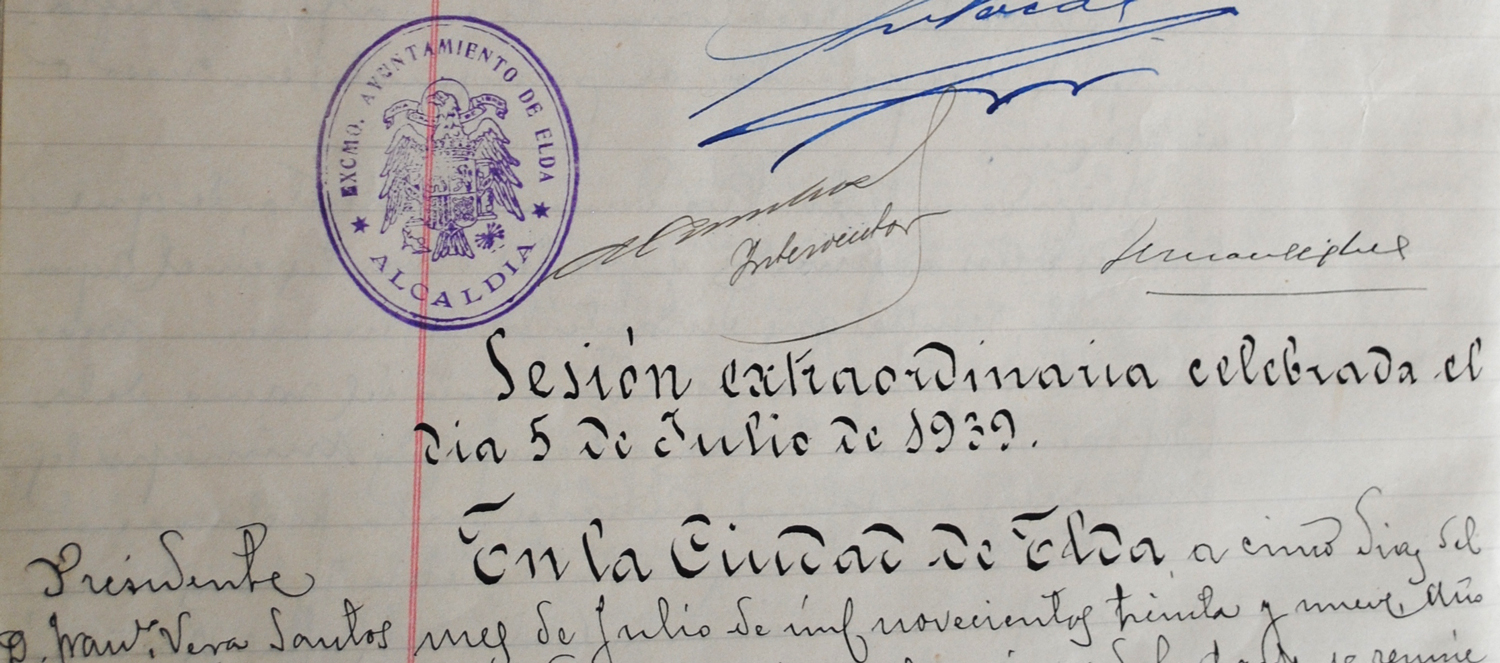 EXCMO. AYUNTAMIENTO DE ELDA
ALCALDIA
Interventor
Sesión extraordinaria celebrada el
dia 5 de Julio de 1939.
En la Ciudad de Elda a cinco dias del
Presidente
D. Franco. Vera Santos
mes de Julio de mil novecientos treinta y nueve, Año
se reunie